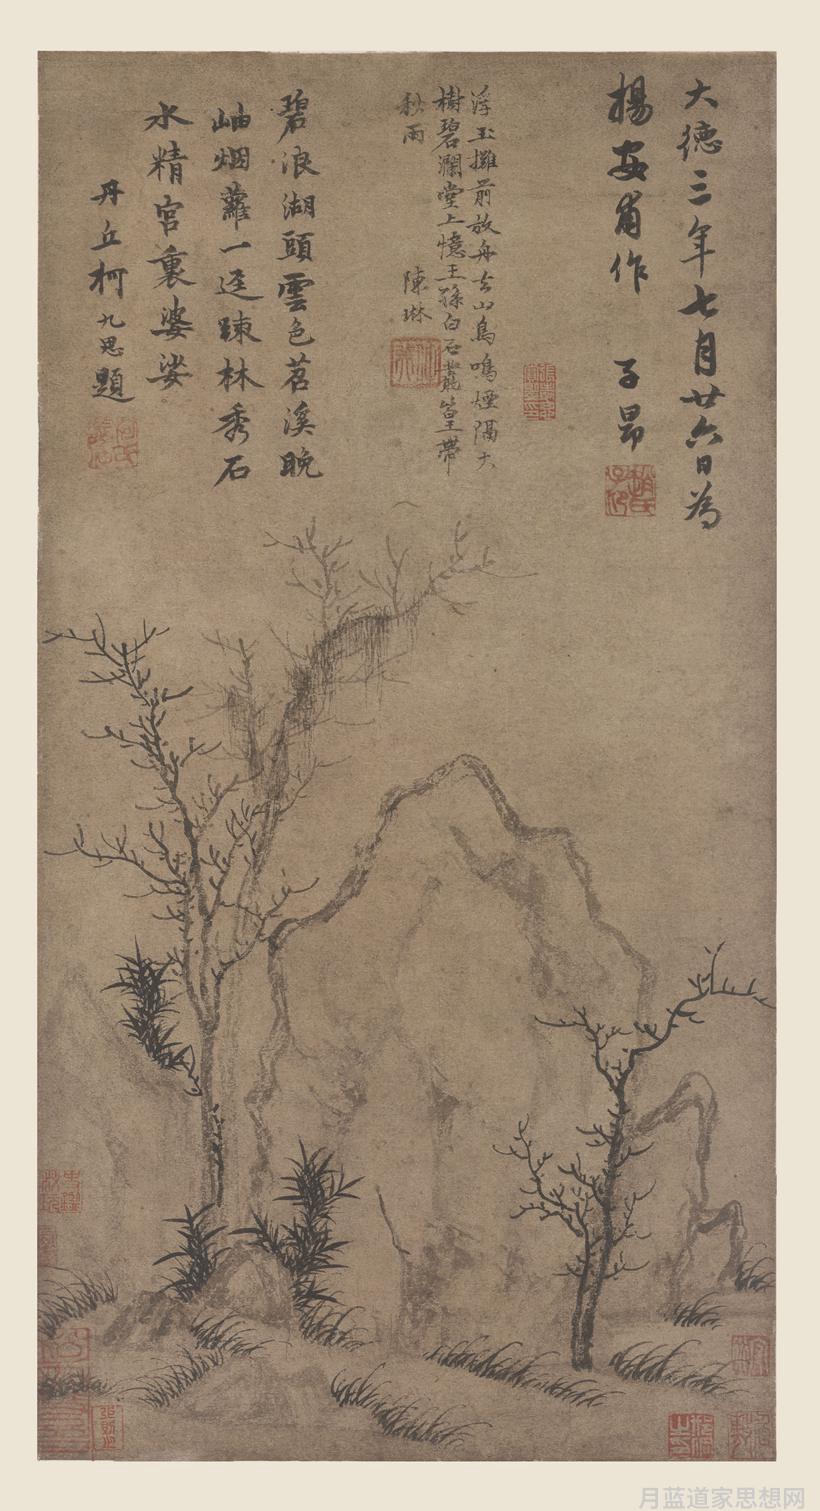 大德三年七月廿六日為
楊安甫作　子昂
浮玉攤前放舟去山鳥鳴煙隔大
樹碧瀾堂上憶王孫白石叢篁帶
秋雨　陳琳
碧浪湖頭雲色茗溪晚
岫烟蘿一逕踈林秀石
水精宮裏婆娑
丹丘柯九思題
趙氏子昂
月蓝道家思想网